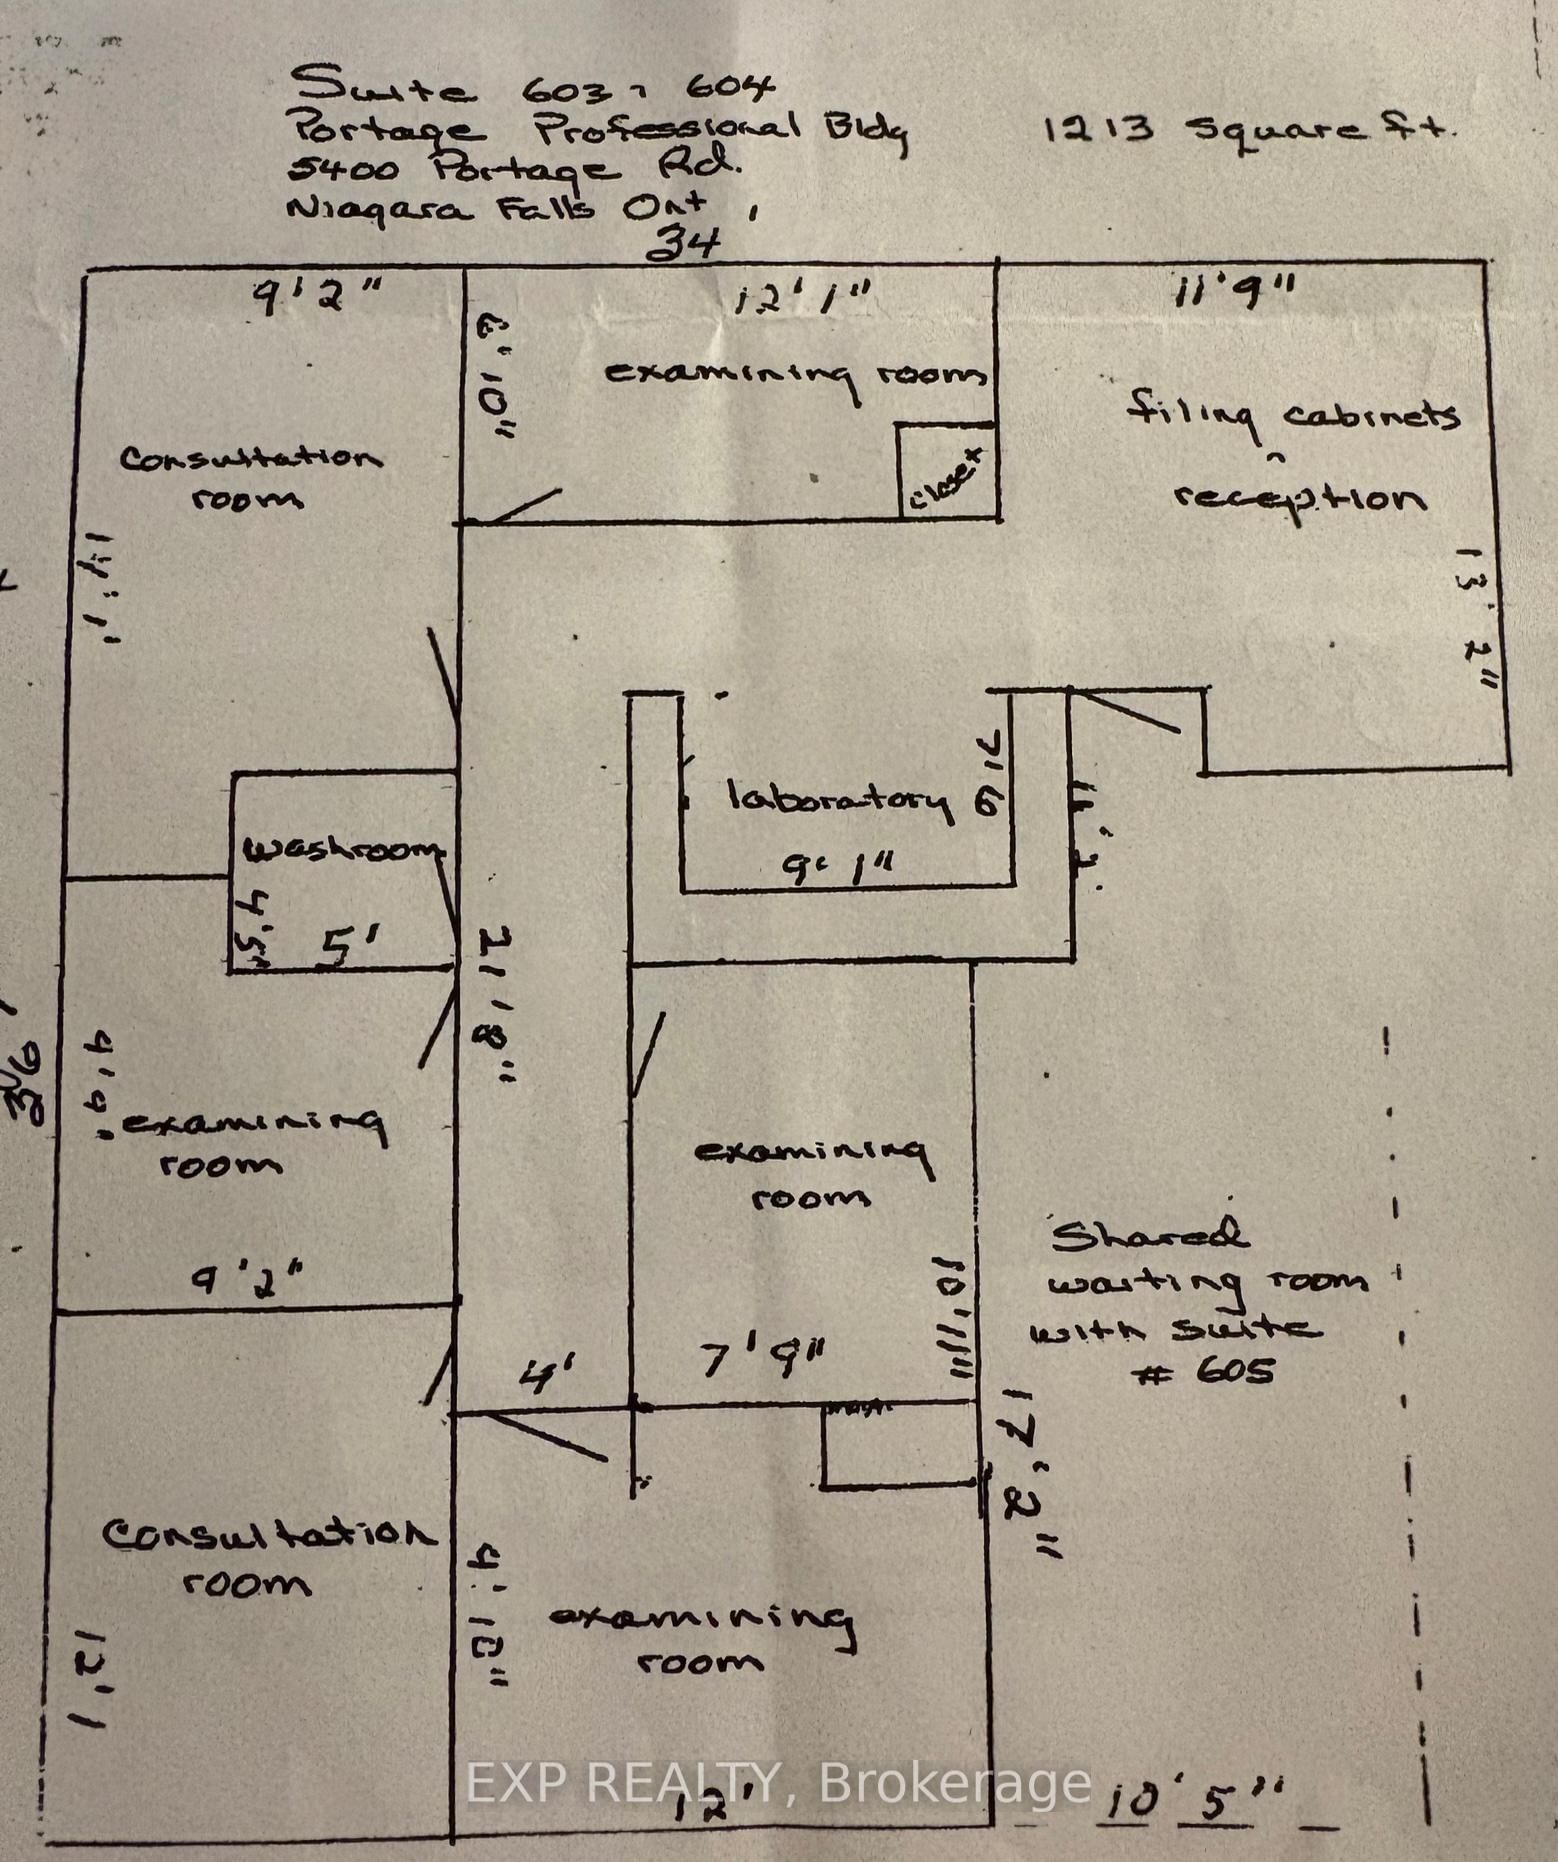 Suite 603, 604
Portage Professional Bldg
1213 Square ft.
5400 Portage Rd.
Niagara Falls Ont
34'
9'2"
12'1"
11'9"
6'10"
examining room
closet
filing cabinets
reception
13'2"
Consultation
room
14'1"
laboratory
7'6
9'1"
11'2"
washroom
4'5"
5'
21'8"
36'
9'9"
examining
room
9'2"
examining
room
10'11"
7'9"
4'
Shared
waiting room
with Suite
# 605
17'2"
Consultation
room
12'1
9'10"
examining
room
12'
10'5"
EXP REALTY, Brokerage